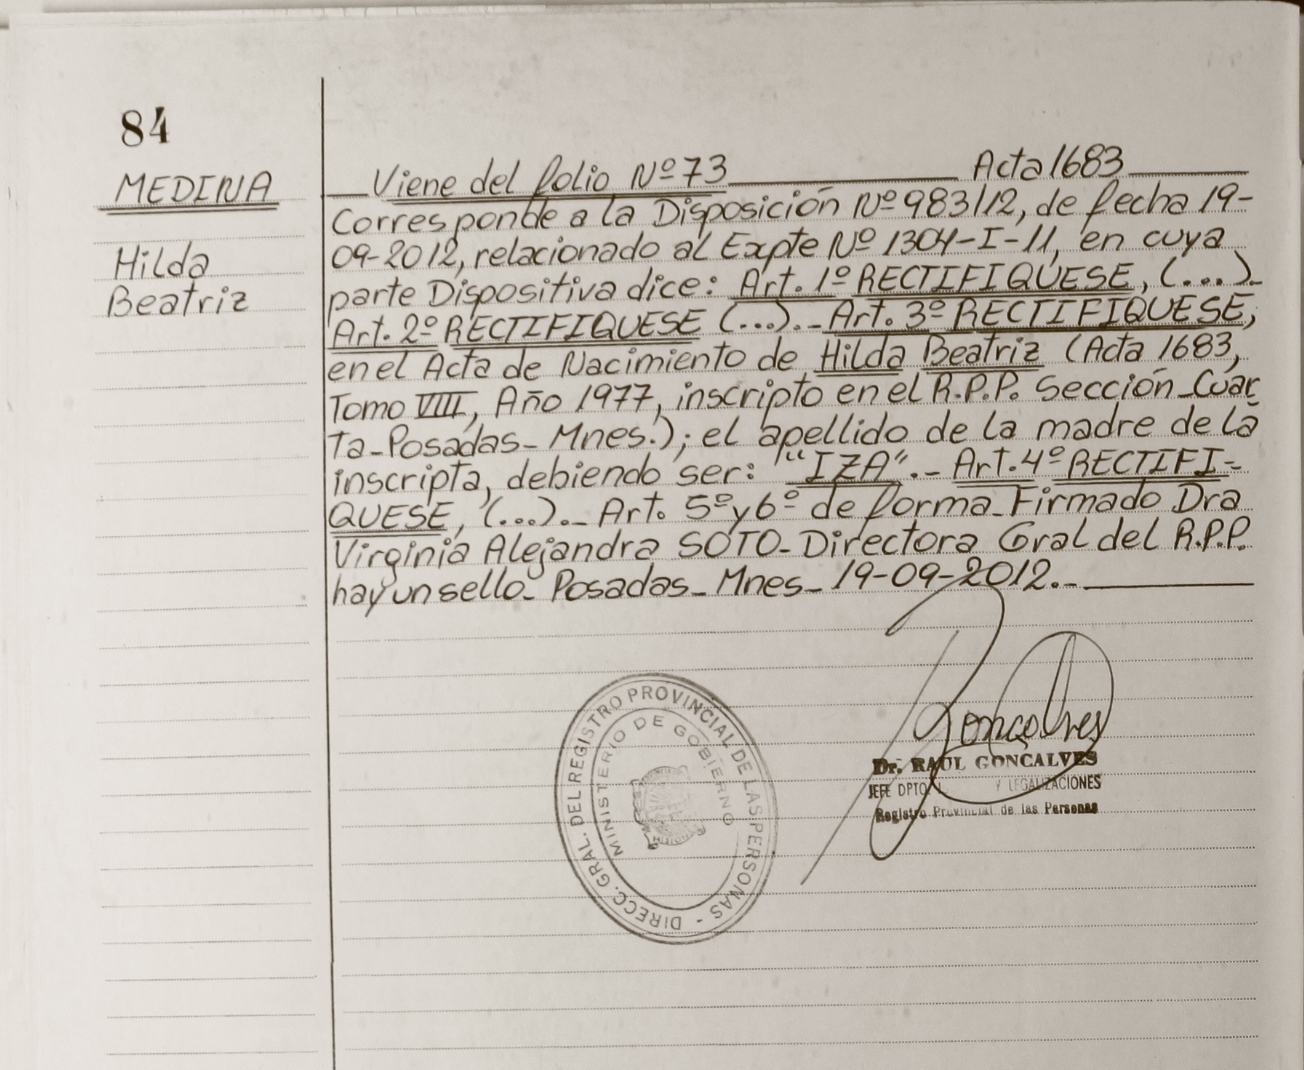 84
MEDINA
Hilda
Beatriz
Viene del folio Nº 73 Acta 1683
Corresponde a la Disposición Nº 983/12, de fecha 19-
09-2012, relacionado al Expte Nº 1304-I-11, en cuya
parte Dispositiva dice: Art. 1º RECTIFIQUESE, (...)._
Art. 2º RECTIFIQUESE (...)._ Art. 3º RECTIFIQUESE,
en el Acta de Nacimiento de Hilda Beatriz (Acta 1683,
Tomo VIII, Año 1977, inscripto en el R.P.P. Sección Cuar
ta-Posadas- Mnes.); el apellido de la madre de la
inscripta, debiendo ser: "IZA"._ Art. 4º RECTIFI-
QUESE, (...)._ Art. 5º y 6º de forma_Firmado Dra
Virginia Alejandra SOTO-Directora Gral del R.P.P.
hay un sello_ Posadas_ Mnes_ 19-09-2012._
DIRECC. GRAL. DEL REGISTRO PROVINCIAL DE LAS PERSONAS -
MINISTERIO DE GOBIERNO
Goncalves
Dr. RAUL GONCALVES
JEFE DPTO. Y LEGALIZACIONES
Registro Provincial de las Personas